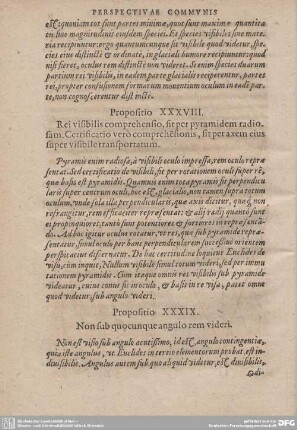 PERSPECTIVAE COMMVNIS
est, quoniam tot sunt partes minimæ, quot sunt maximæ quantita
tis huo magnitudinis eiusdem speciei. Et species visibiles sine mate
ria recipiuntur: ergo quantumcunque sit visibile quod videtur, species
eius distincte & ordinate, in glaciali humore recipiuntur: quod
nisi fieret, oculus rem distincte non videret. Si enim species duarum
partium rei visibilis, in eadem parte glacialis reciperentur, partes
rei, propter confusionem formarum mouentium oculum in eadē par
te, non cognoscerentur distincte.
Propositio XXXVIII.
Rei visibilis comprehensio, fit per pyramidem radio
sam. Certificatio verò comprehēsionis, fit per axem eius
super visibile transportatum.
Pyramis enim radiosa, à visibili oculo impressa, rem oculo repræ
sentat. Sed certificatio de visibili, fit per rotationem oculi super rē,
quæ basis est pyramidis. Quamuis enim tota pyramis sit perpendicu
laris super centrum oculi, hoc est, glacialis, non tamen supra totum
oculum, vnde sola illa perpendicularis, quæ axis dicitur, quæ, non
refrangitur, rem efficaciter repræsentat: & alij radij quantò sunt
ei propinquiores, tantò sunt potentiores & fortiores in repræsentā
do. Adhoc igitur oculus rotatur, vt res, quæ sub pyramide repræ
sentatur, simul oculo per hanc perpendicularem successiuo orientem
perspicaciter discernatur. De hac certitudine loquitur Euclides de
visu, cùm inquit, Nullum visibile simul totum videri, sed per immu
tationem pyramidis. Cùm itaque omnis res visibilis sub pyramide
videatur, cuius conus sit in oculo, & basis in re visa, patet omne
quod videtur, sub angulo videri.
Propositio XXXIX.
Non sub quocunque angulo rem videri.
Non est visio sub angulo acutissimo, id est, angulo contingentiæ,
quia iste angulus, vt Euclides in tertio elementorum probat, est in
diuisibilis. Angulus autem sub quo aliquid videtur, est diuisibilis,